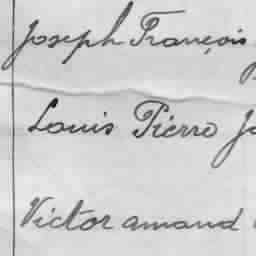 Joseph François
Louis Pierre
Victor amand